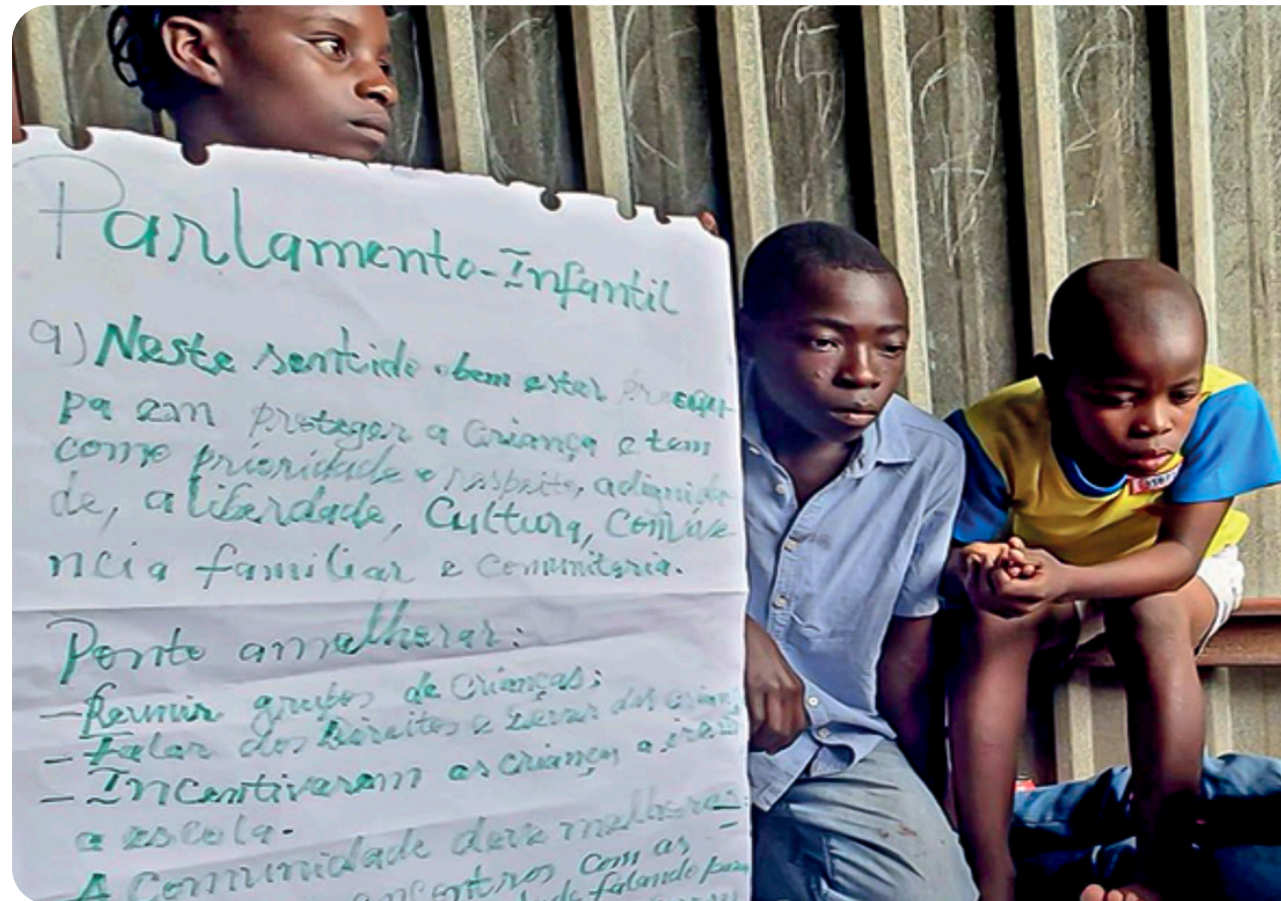 Parlamento-Infantil
a) Neste sentido o bem estar
pa em proteger a Criança e tem
como prioridade o respeito, a dignida
de, a liberdade, Cultura, Convive
ncia familiar e Comunitaria.
Ponto a melhorar:
- Reunir grupos de Crianças;
- Falar dos Direitos e das
- Incentivarem as criança a irem
a escola.
- A Comunidade deve melhorar
encontros com as
falando para